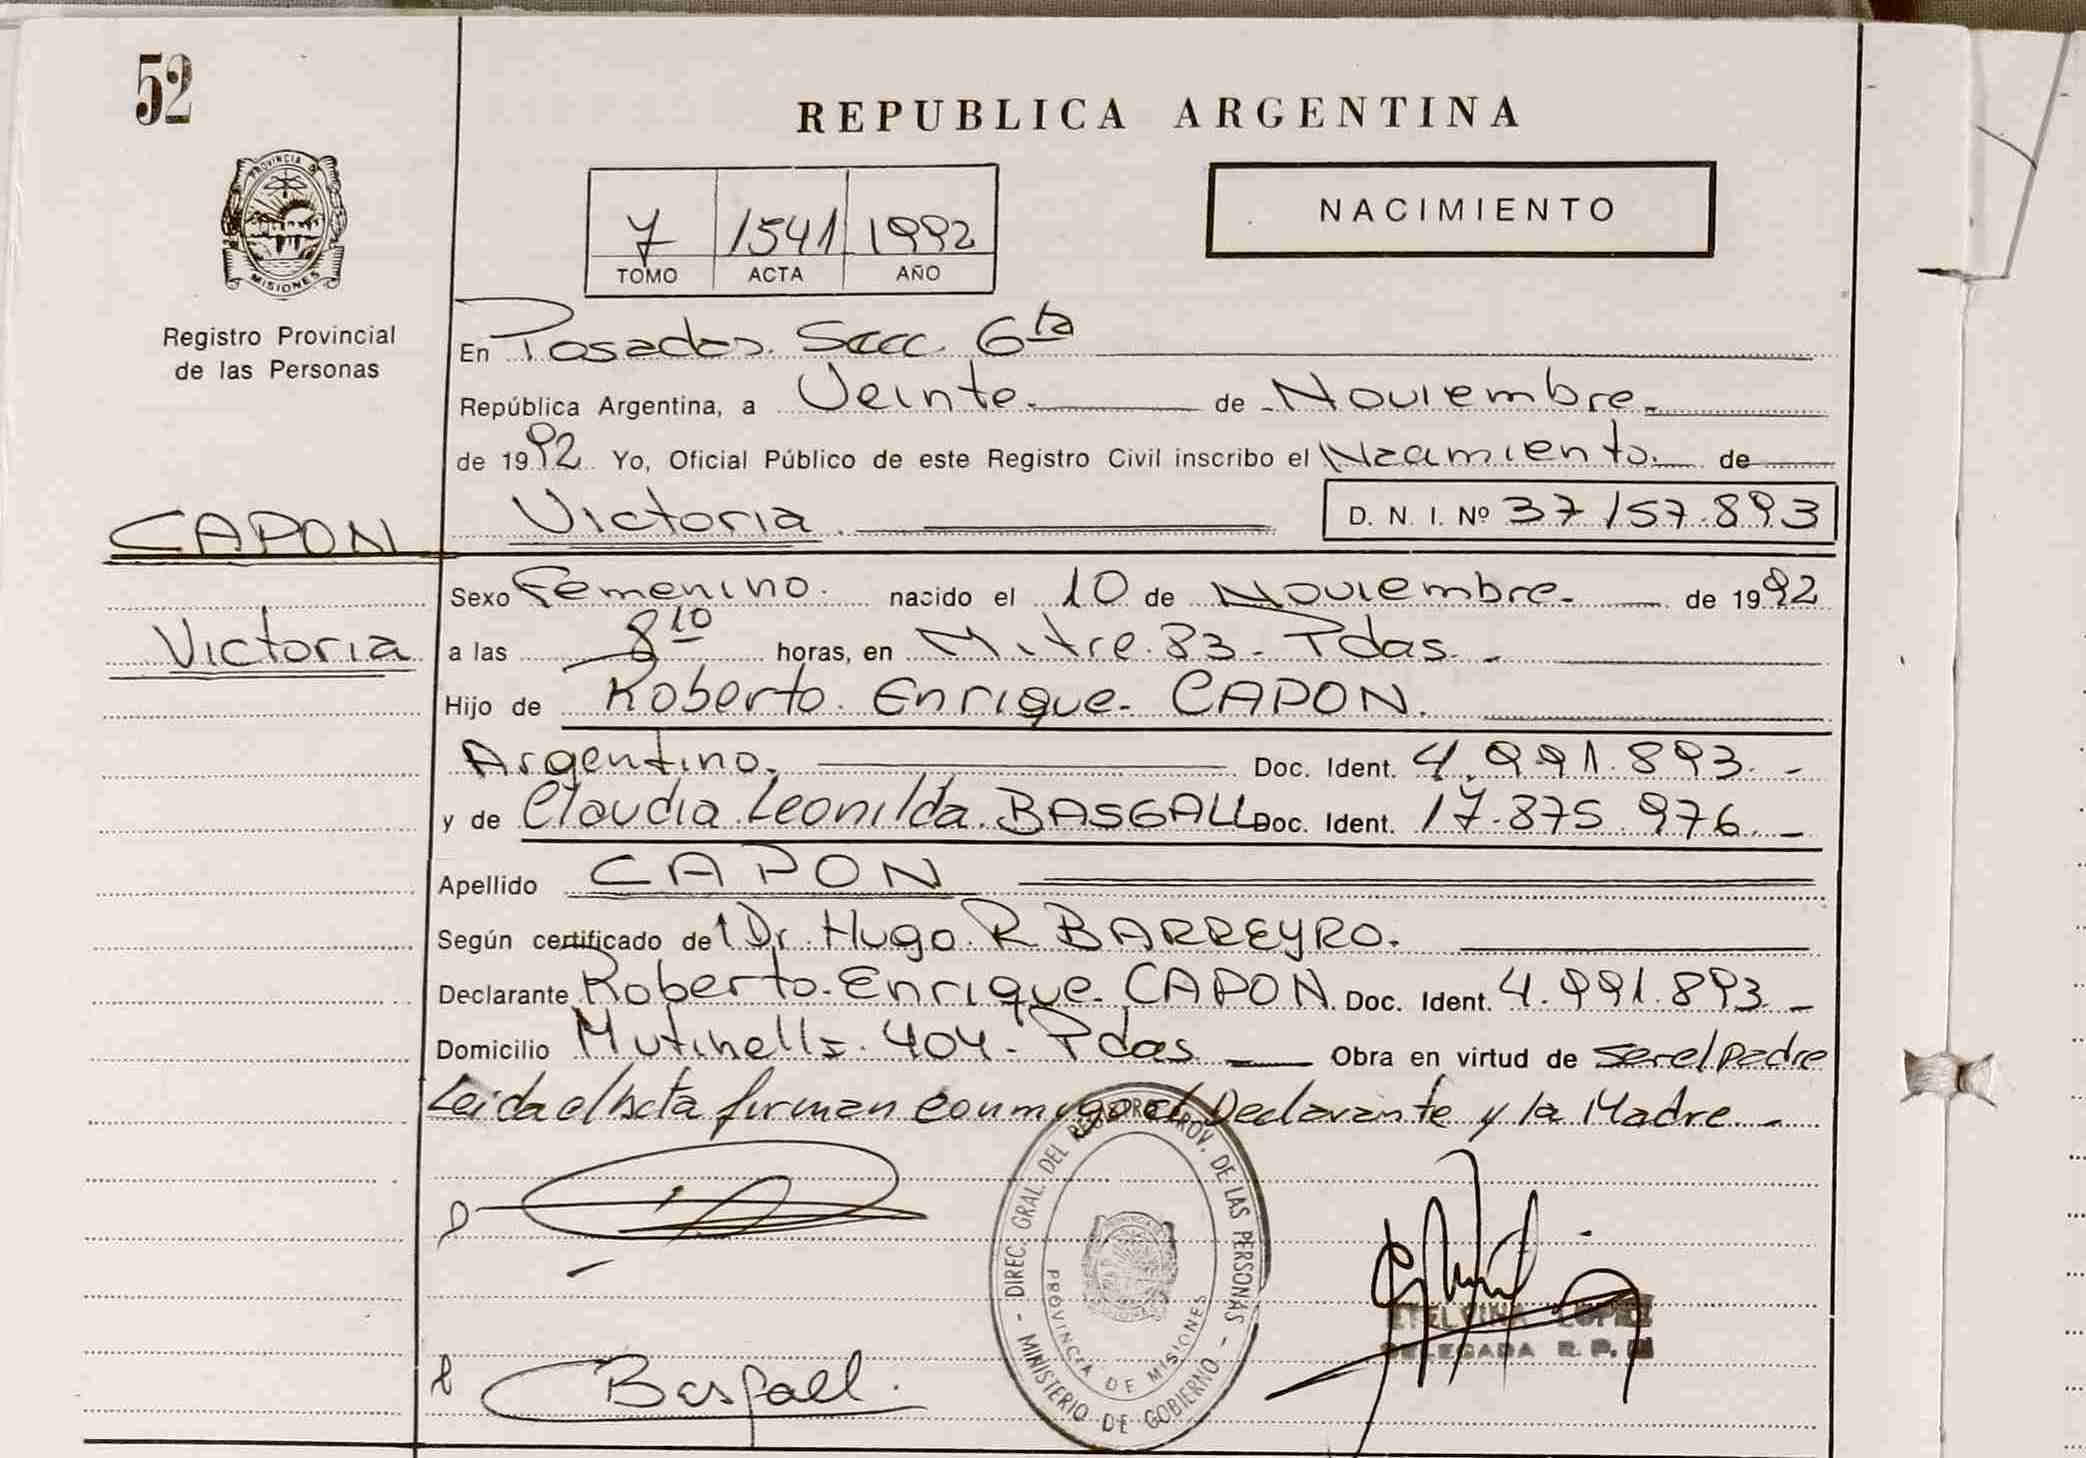 52
REPUBLICA ARGENTINA
PROVINCIA DE
MISIONES
Registro Provincial
de las Personas
7 1541 1992
TOMO ACTA AÑO
NACIMIENTO
En Posadas. Secc. 6ta
República Argentina, a Veinte. de Noviembre.
de 1992 Yo, Oficial Público de este Registro Civil inscribo el Nacimiento. de
Victoria. D. N. I. Nº 37157.893
CAPON
Victoria
Sexo Femenino. nacido el 10 de Noviembre. de 1992
a las 8 10 horas, en Mitre. 83 - Pdas. -
Hijo de Roberto. Enrique. CAPON.
Argentino. Doc. Ident. 4.991.893. -
y de Claudia Leonilda. BASGALL Doc. Ident. 17.875.976. -
Apellido CAPON
Según certificado de Dr. Hugo. R BARREYRO.
Declarante Roberto. Enrique. CAPON. Doc. Ident. 4.991.893. -
Domicilio Mutinelli. 404. Pdas. Obra en virtud de ser el padre
Leida el acta firman conmigo el Declarante y la Madre. -
- DIREC. GRAL. DEL REGISTRO PROV. DE LAS PERSONAS -
MINISTERIO DE GOBIERNO
PROVINCIA DE MISIONES
ETELVINA LOPEZ
DELEGADA R. P.
Basgall.